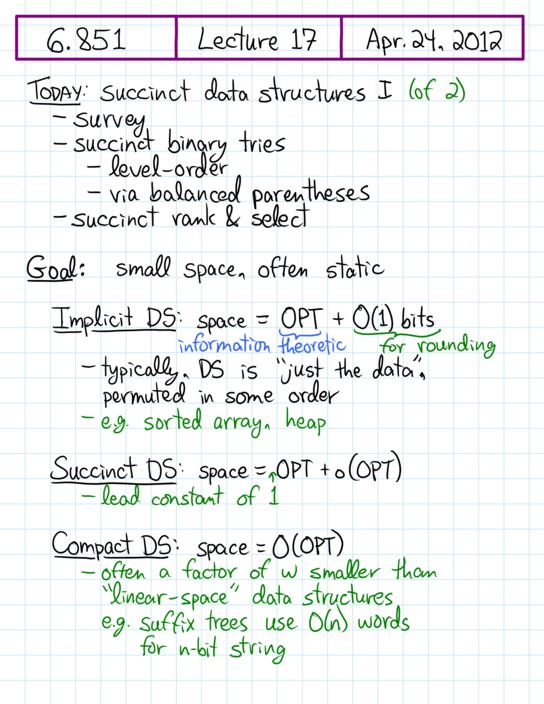 6.851 Lecture 17 Apr. 24, 2012
TODAY: succinct data structures I (of 2)
- survey
- succinct binary tries
- level-order
- via balanced parentheses
- succinct rank & select
Goal: small space, often static
Implicit DS: space = OPT + O(1) bits
information theoretic for rounding
- typically, DS is "just the data",
permuted in some order
- e.g. sorted array, heap
Succinct DS: space = OPT + o(OPT)
- lead constant of 1
Compact DS: space = O(OPT)
- often a factor of w smaller than
"linear-space" data structures
e.g. suffix trees use O(n) words
for n-bit string